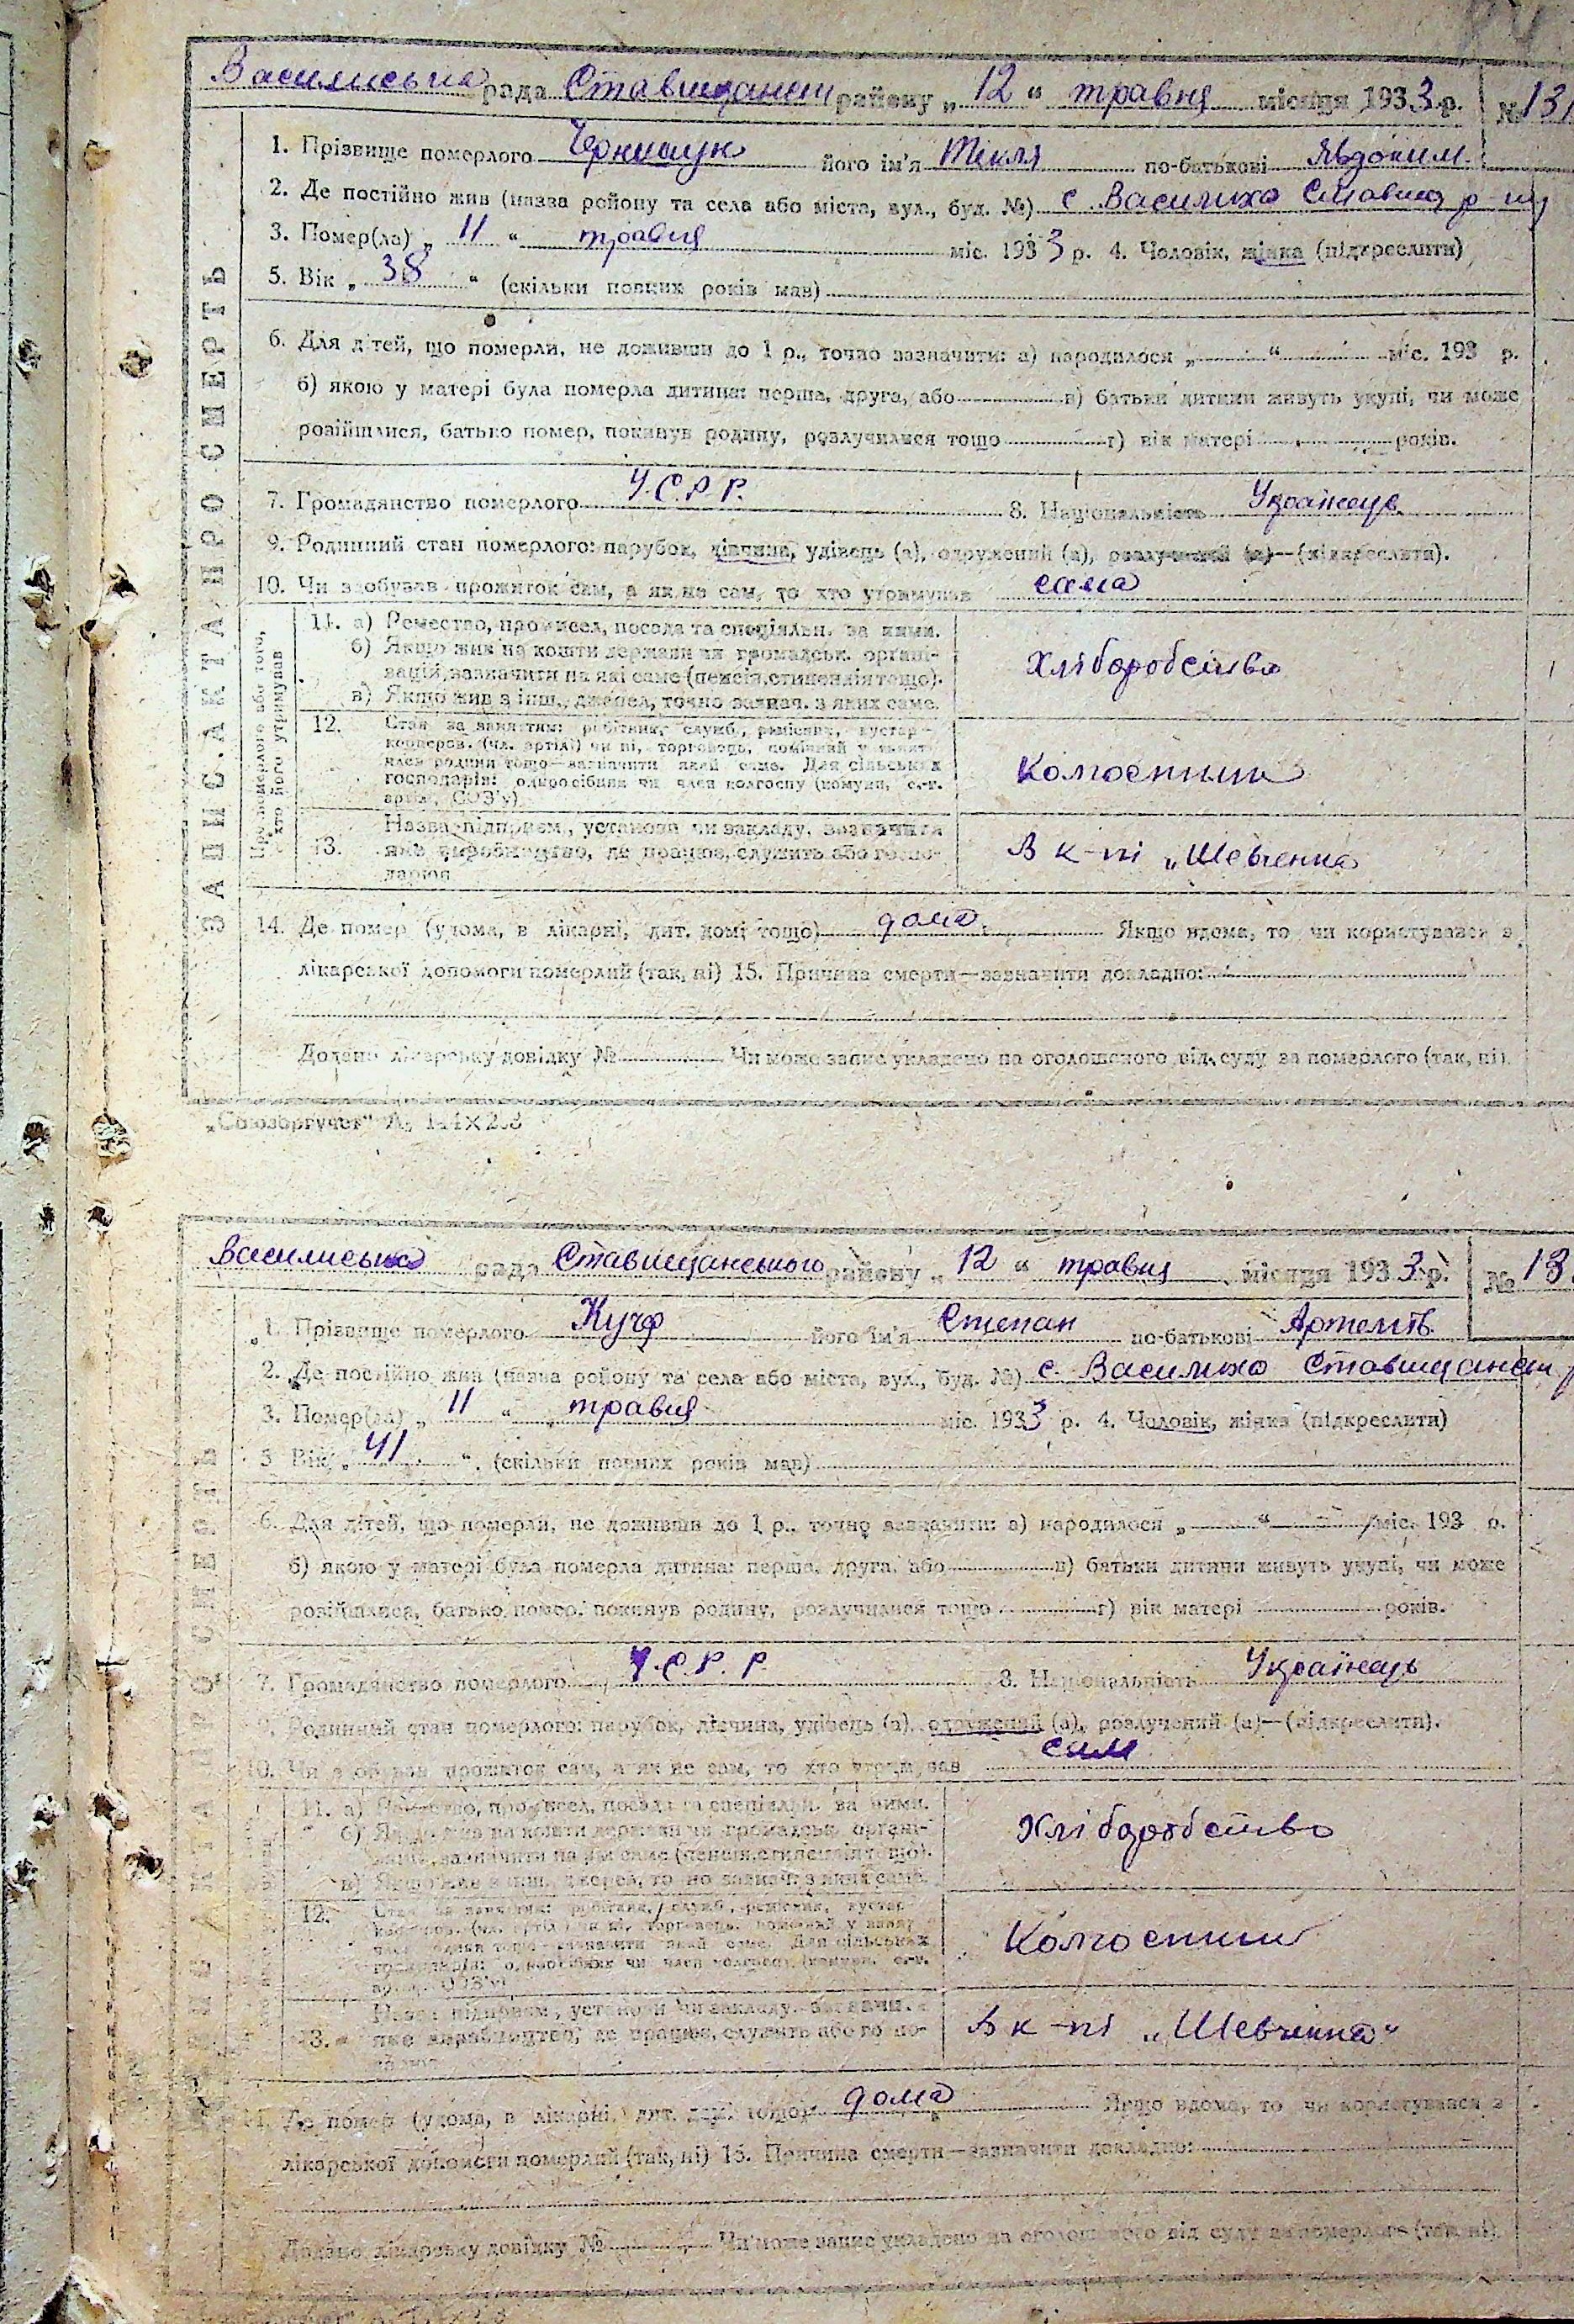 Василиська рада Ставищанськ району „ 12 “ травня місяця 1933 р. № 131
ЗАПИС АКТА ПРО СМЕРТЬ
1. Прізвище померлого його ім'я Текля по-батькові Явдоким.
2. Де постійно жив (назва району та села або міста, вул., буд. №) с. Василиха Ставищ р-ну
3. Помер(ла) „ 11 “ травня міс. 1933 р. 4. Чоловік, жінка (підкреслити)
5. Вік „ 38 “ (скільки повних років мав)
6. Для дітей, що померли, не доживши до 1 р., точно зазначити: а) народилося „ “ міс. 193 р.
б) якою у матері була померла дитина: перша, друга, або в) батьки дитини живуть укупі, чи може
розійшлися, батько помер, покинув родину, розлучилися тощо г) вік матері років.
7. Громадянство померлого У.С.Р.Р. 8. Національність Українець
9. Родинний стан померлого: парубок, дівчина, удівець (а), одружений (а), розлучений (а)—(підкреслити).
10. Чи здобував прожиток сам, а як не сам, то хто утримував сама
Про померлого або того, хто його утримував
11. а) Ремество, промисел, посада та спеціяльн. за ними.
б) Якщо жив на кошти держави чи громадськ. органі-
зацій, зазначити на які саме (пенсія, стипендія тощо).
в) Якщо жив з інш. джерел, точно зазнач. з яких саме.
Хліборобство
12. Стан за заняттям: робітник, служб., ремісник, кустар—
кооперов. (чл. артілі) чи ні, торговець, помічний у занят-
тях родини тощо—зазначити який саме. Для сільських
господарів: одноосібник чи член колгоспу (комуни, с.-г.
артілі, СОЗ'у)
Колгоспник
13. Назва підприєм., установи чи закладу, зазначити
яке виробництво, де працює, служить або госпо-
дарює
В к-пі „Шевченка
14. Де помер (удома, в лікарні, дит. домі тощо) дома. Якщо вдома, то чи користувався з
лікарської допомоги померлий (так, ні) 15. Причина смерти—зазначити докладно:
Додано лікарську довідку № Чи може запис укладено на оголошеного від суду за померлого (так, ні).
„Союзоргучет“
Василиська рада Ставищанського району „ 12 “ травня місяця 1933 р. № 13
1. Прізвище померлого його ім'я Степан по-батькові Артемів.
2. Де постійно жив (назва району та села або міста, вул., буд. №) с. Василиха Ставищанськ
3. Помер(ла) „ 11 “ травня міс. 1933 р. 4. Чоловік, жінка (підкреслити)
5 Вік „ 41 “. (скільки повних років мав)
6. Для дітей, що померли, не доживши до 1 р., точно зазначити: а) народилося „ “ міс. 193 р.
б) якою у матері була померла дитина: перша, друга, або в) батьки дитини живуть укупі, чи може
розійшлися, батько помер, покинув родину, розлучилися тощо г) вік матері років.
7. Громадянство померлого У.С.Р.Р. 8. Національність Українець
9. Родинний стан померлого: парубок, дівчина, удівець (а), одружений (а), розлучений (а)—(підкреслити).
10. Чи здобував прожиток сам, а як не сам, то хто утримував сам
11. а) Ремество, промисел, посада та спеціяльн. за ними.
б) Якщо жив на кошти держави чи громадськ. органі-
зацій, зазначити на які саме (пенсія, стипендія тощо).
в) Якщо жив з інш. джерел, точно зазнач. з яких саме.
Хліборобство
12. Стан за заняттям: робітник, служб., ремісник, кустар—
Колгоспник
13. Назва підприєм., установи чи закладу, зазначити
яке виробництво, де працює, служить або госпо-
дарює
В к-пі „Шевченка“
14. Де помер (удома, в лікарні, дит. домі тощо) дома Якщо вдома, то чи користувався з
лікарської допомоги померлий (так, ні) 15. Причина смерти—зазначити докладно:
Додано лікарську довідку № Чи може запис укладено на оголошеного від суду за померлого (так, ні).